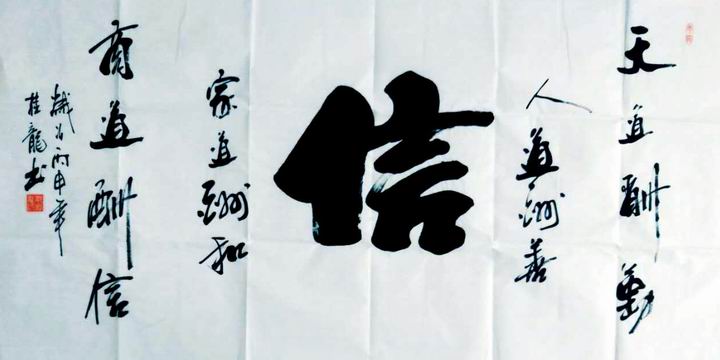 天道酬勤
人道酬善
信
家道酬和
商道酬信
丙申年
桂龍书